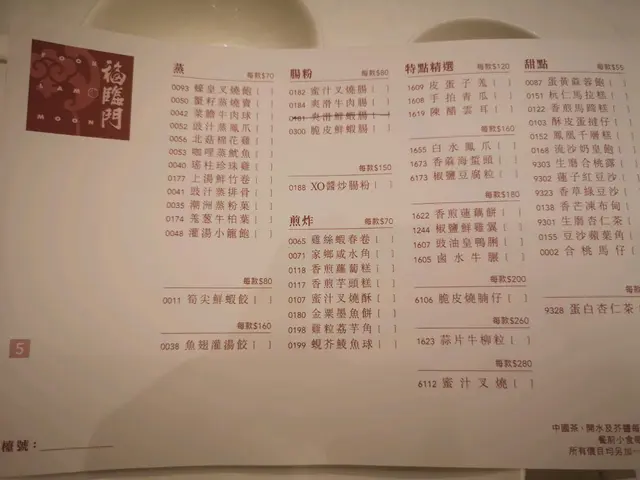 FOOK
LAM
MOON
福臨門
蒸 每款$70
0093 蠔皇叉燒飽 [ ]
0050 蟹籽燒賣 [ ]
0042 菜膽牛肉球 [ ]
0052 豉汁蒸鳳爪 [ ]
0056 北菇棉花雞 [ ]
0053 咖喱蒸魷魚 [ ]
0040 瑤柱珍珠雞 [ ]
0177 上湯鮮竹卷 [ ]
0041 豉汁蒸排骨 [ ]
0035 潮洲蒸粉菓 [ ]
0174 羌蔥牛柏葉 [ ]
0048 灌湯小籠飽 [ ]
每款$80
0011 筍尖鮮蝦餃 [ ]
每款$160
0038 魚翅灌湯餃 [ ]
5
檯號：
腸粉 每款$80
0182 蜜汁叉燒腸 [ ]
0184 爽滑牛肉腸 [ ]
0181 爽滑鮮蝦腸 [ ]
0300 脆皮鮮蝦腸 [ ]
每款$150
0188 XO醬炒腸粉 [ ]
煎炸 每款$70
0065 雞絲蝦春卷 [ ]
0071 家鄉咸水角 [ ]
0118 香煎蘿蔔糕 [ ]
0117 香煎芋頭糕 [ ]
0107 蜜汁叉燒酥 [ ]
0180 金粟墨魚餅 [ ]
0198 雞粒荔芋角 [ ]
0199 蜆芥鯪魚球 [ ]
特點精選 每款$120
1609 皮蛋子羌 [ ]
1608 手拍青瓜 [ ]
1619 陳醋雲耳 [ ]
每款$160
1655 白水鳳爪 [ ]
1673 香蒜海蜇頭 [ ]
6173 椒鹽豆腐粒 [ ]
每款$180
1622 香煎蓮藕餅 [ ]
1244 椒鹽鮮雞翼 [ ]
1607 豉油皇鴨脷 [ ]
1605 鹵水牛𦟌 [ ]
每款$200
6106 脆皮燒腩仔 [ ]
每款$260
1623 蒜片牛柳粒 [ ]
每款$280
6112 蜜汁叉燒 [ ]
甜點 每款$55
0087 蛋黃蔴蓉飽 [ ]
0151 杬仁馬拉糕 [ ]
0122 香煎馬蹄糕 [ ]
0103 酥皮蛋撻仔 [ ]
0152 鳳凰千層糕 [ ]
0168 流沙奶皇飽 [ ]
9303 生磨合桃露 [ ]
9302 蓮子紅豆沙 [ ]
9323 香草綠豆沙 [ ]
0138 香芒凍布甸 [ ]
9301 生磨杏仁茶 [ ]
0155 豆沙蘋葉角 [ ]
0002 合桃馬仔 [ ]
每款
9328 蛋白杏仁茶
中國茶，開水及芥醬每
餐前小食每
所有價目均另加一